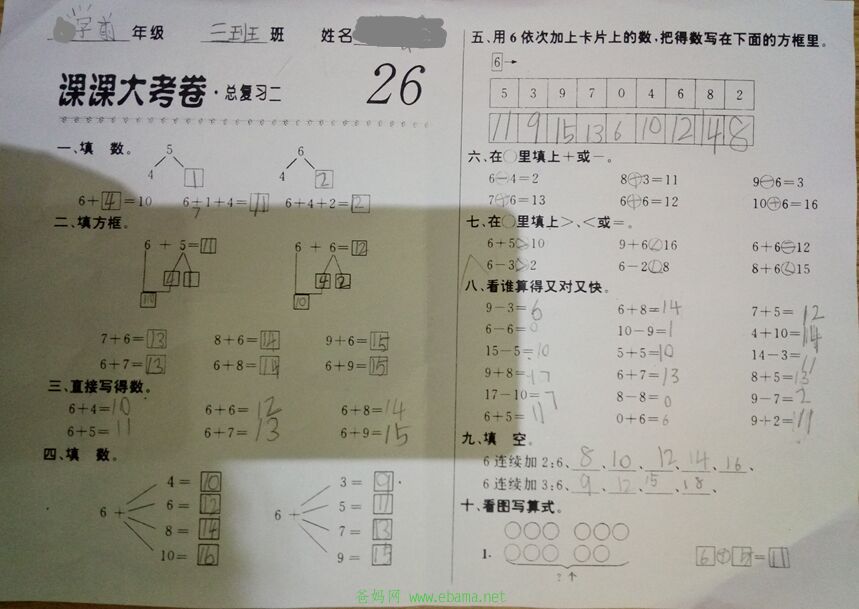 学前 年级 三班 班 姓名
课课大考卷·总复习二 26
一、填 数。
5
4 1
6
4 2
6+4=10 6+1+4=11 6+4+2=12
7
二、填方框。
6 + 5=11 6 + 6=12
4 1 4 2
10 10
7+6=13 8+6=14 9+6=15
6+7=13 6+8=14 6+9=15
三、直接写得数。
6+4=10 6+6=12 6+8=14
6+5=11 6+7=13 6+9=15
四、填 数。
6+
4=10
6=12
8=14
10=16
6+
3=9
5=11
7=13
9=15
五、用6依次加上卡片上的数,把得数写在下面的方框里。
6→
5 3 9 7 0 4 6 8 2
11 9 15 13 6 10 12 14 8
六、在○里填上+或-。
6-4=2 8+3=11 9-6=3
7+6=13 6+6=12 10+6=16
七、在○里填上>、<或=。
6+5>10 9+6<16 6+6=12
6-3>2 6-2<8 8+6<15
八、看谁算得又对又快。
9-3=6 6+8=14 7+5=12
6-6=0 10-9=1 4+10=14
15-5=10 5+5=10 14-3=11
9+8=17 6+7=13 8+5=13
17-10=7 8-8=0 9-7=2
6+5=11 0+6=6 9+2=11
九、填 空。
6连续加2:6、8、10、12、14、16、
6连续加3:6、9、12、15、18、
十、看图写算式。
1.
?个
6+5=11
爸妈网 www.ebama.net